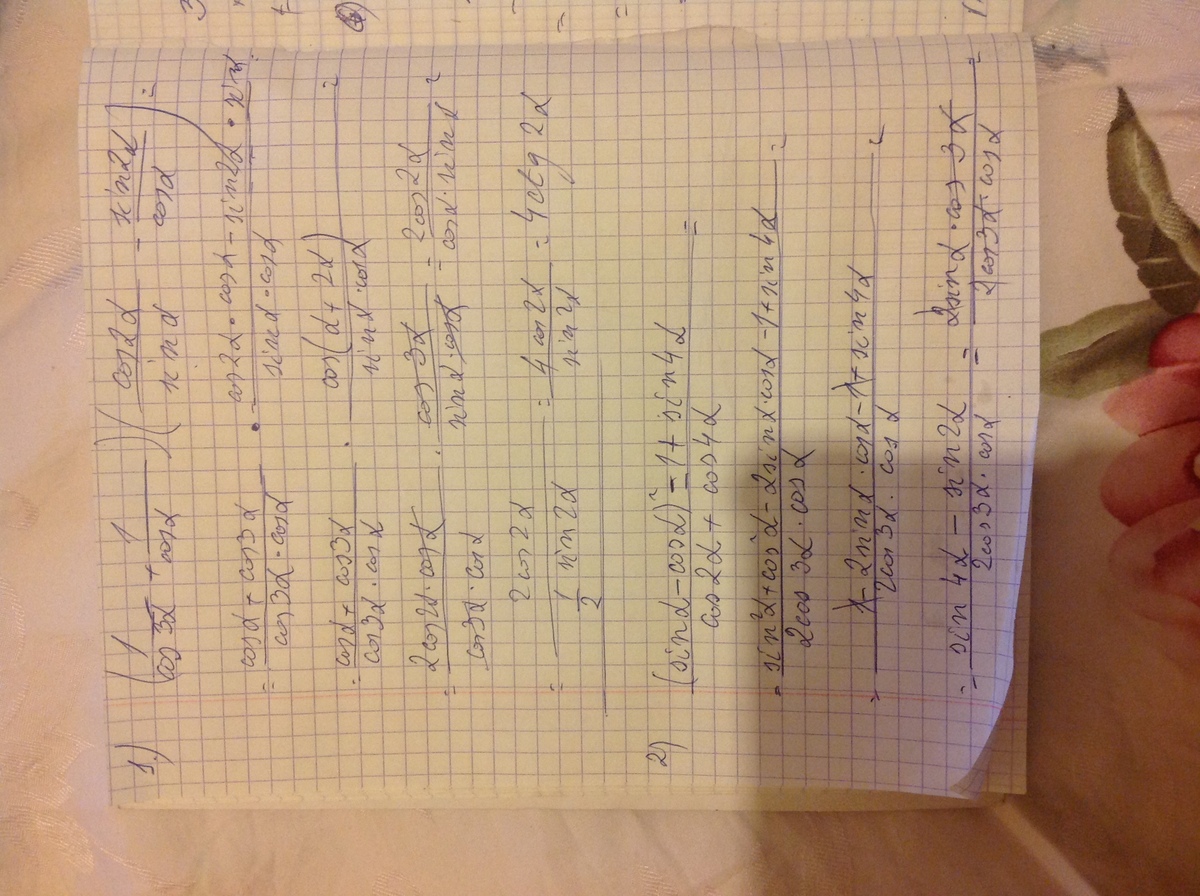 1.) (1/cos 3α + 1/cosα)(cos2α/sinα - sin2α/cosα) =
= (cosα + cos3α)/(cos3α · cosα) · (cos2α · cosα - sin2α · sinα)/(sinα · cosα)
= (cosα + cos3α)/(cos3α · cosα) · cos(α + 2α)/(sinα · cosα) =
= (2cos2α · cosα)/(cos3α · cosα) · cos 3α/(sinα · cosα) = 2cos2α/(cosα · sinα) =
= 2cos2α/(1/2 sin2α) = 4cos2α/sin2α = 4ctg2α
2) ((sinα - cosα)² - 1 + sin4α)/(cos2α + cos4α) =
= (sin²α + cos²α - 2sinα·cosα - 1 + sin4α)/(2cos 3α · cosα) =
= (1 - 2sinα · cosα - 1 + sin4α)/(2cos3α · cosα) =
= (sin4α - sin2α)/(2cos3α · cosα) = (2sinα · cos 3α)/(2cos3α · cosα) =